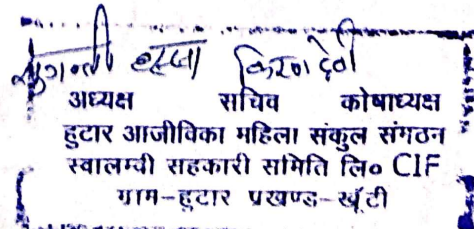 सुगन्ती हस्सा किरण देवी
अध्यक्ष सचिव कोषाध्यक्ष
हुटार आजीविका महिला संकुल संगठन
स्वालम्वी सहकारी समिति लि० CIF
ग्राम-हुटार प्रखण्ड-खूँटी